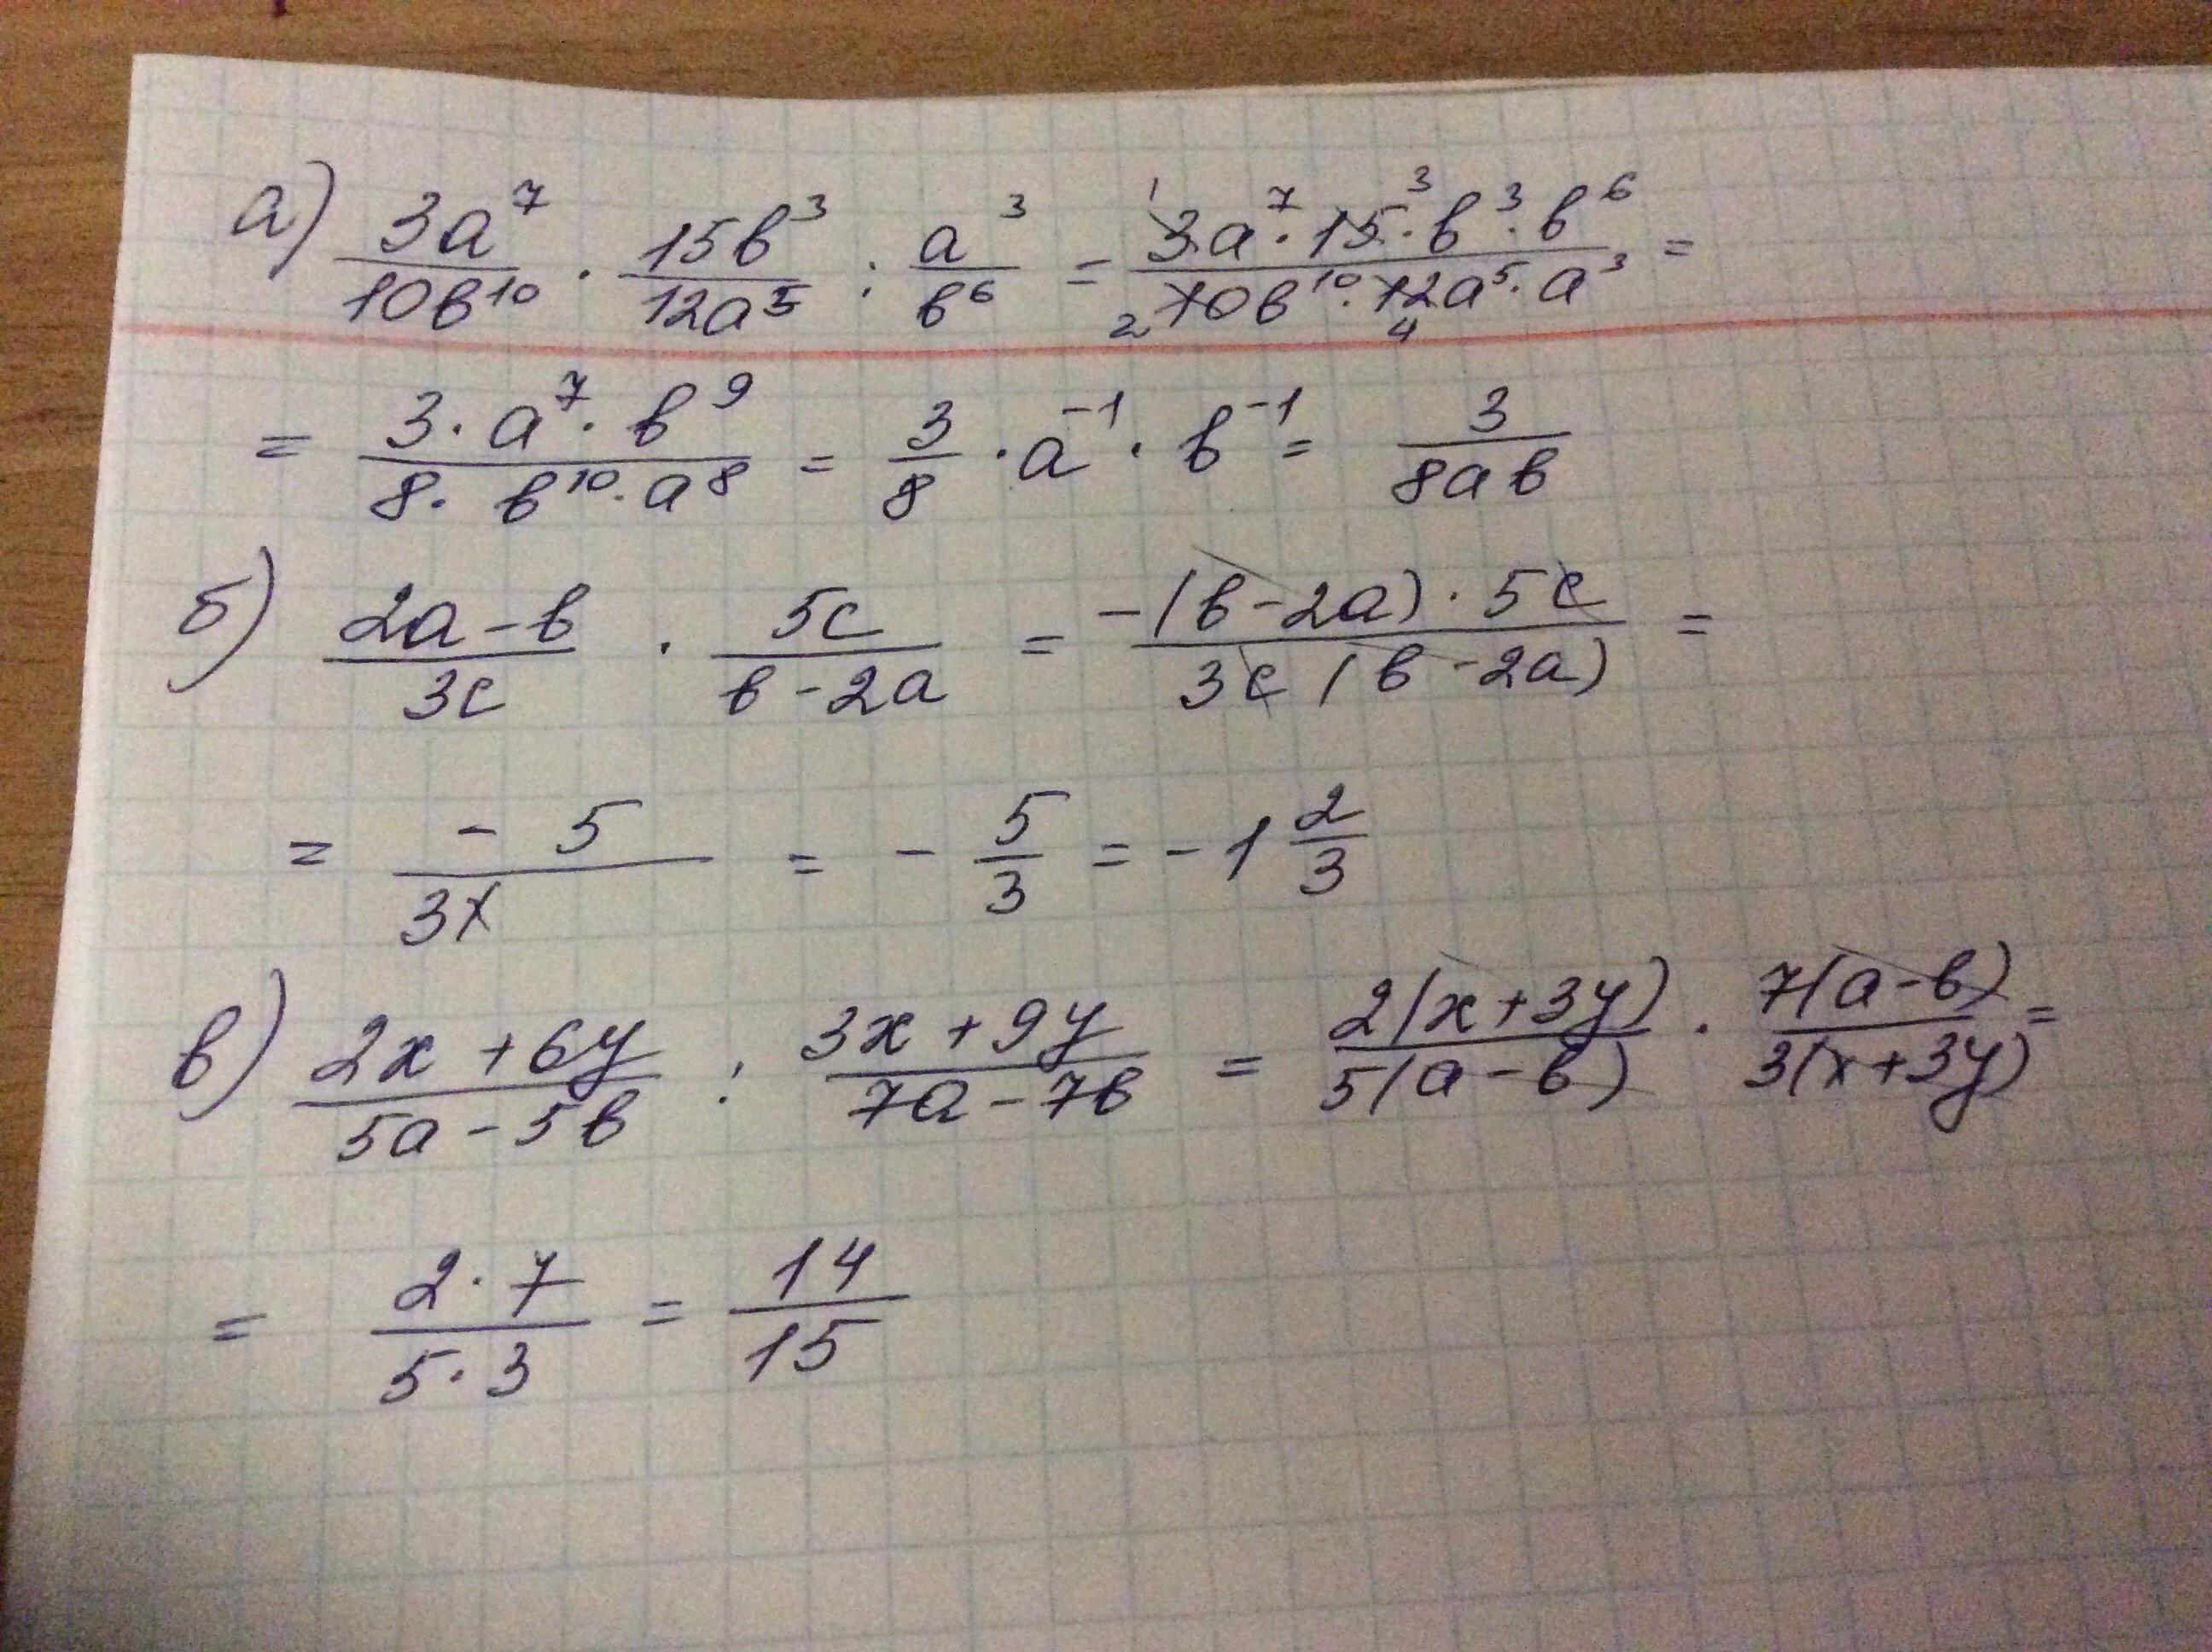 а) 3a⁷/10b¹⁰ · 15b³/12a⁵ : a³/b⁶ = 3a⁷·15·b³·b⁶/10b¹⁰·12a⁵·a³ =
= 3·a⁷·b⁹/8·b¹⁰·a⁸ = 3/8 · a⁻¹ · b⁻¹ = 3/8ab
б) 2a-b/3c · 5c/b-2a = -(b-2a)·5c/3c(b-2a) =
= -5/3 = -5/3 = -1 2/3
в) 2x+6y/5a-5b : 3x+9y/7a-7b = 2(x+3y)/5(a-b) · 7(a-b)/3(x+3y) =
= 2·7/5·3 = 14/15